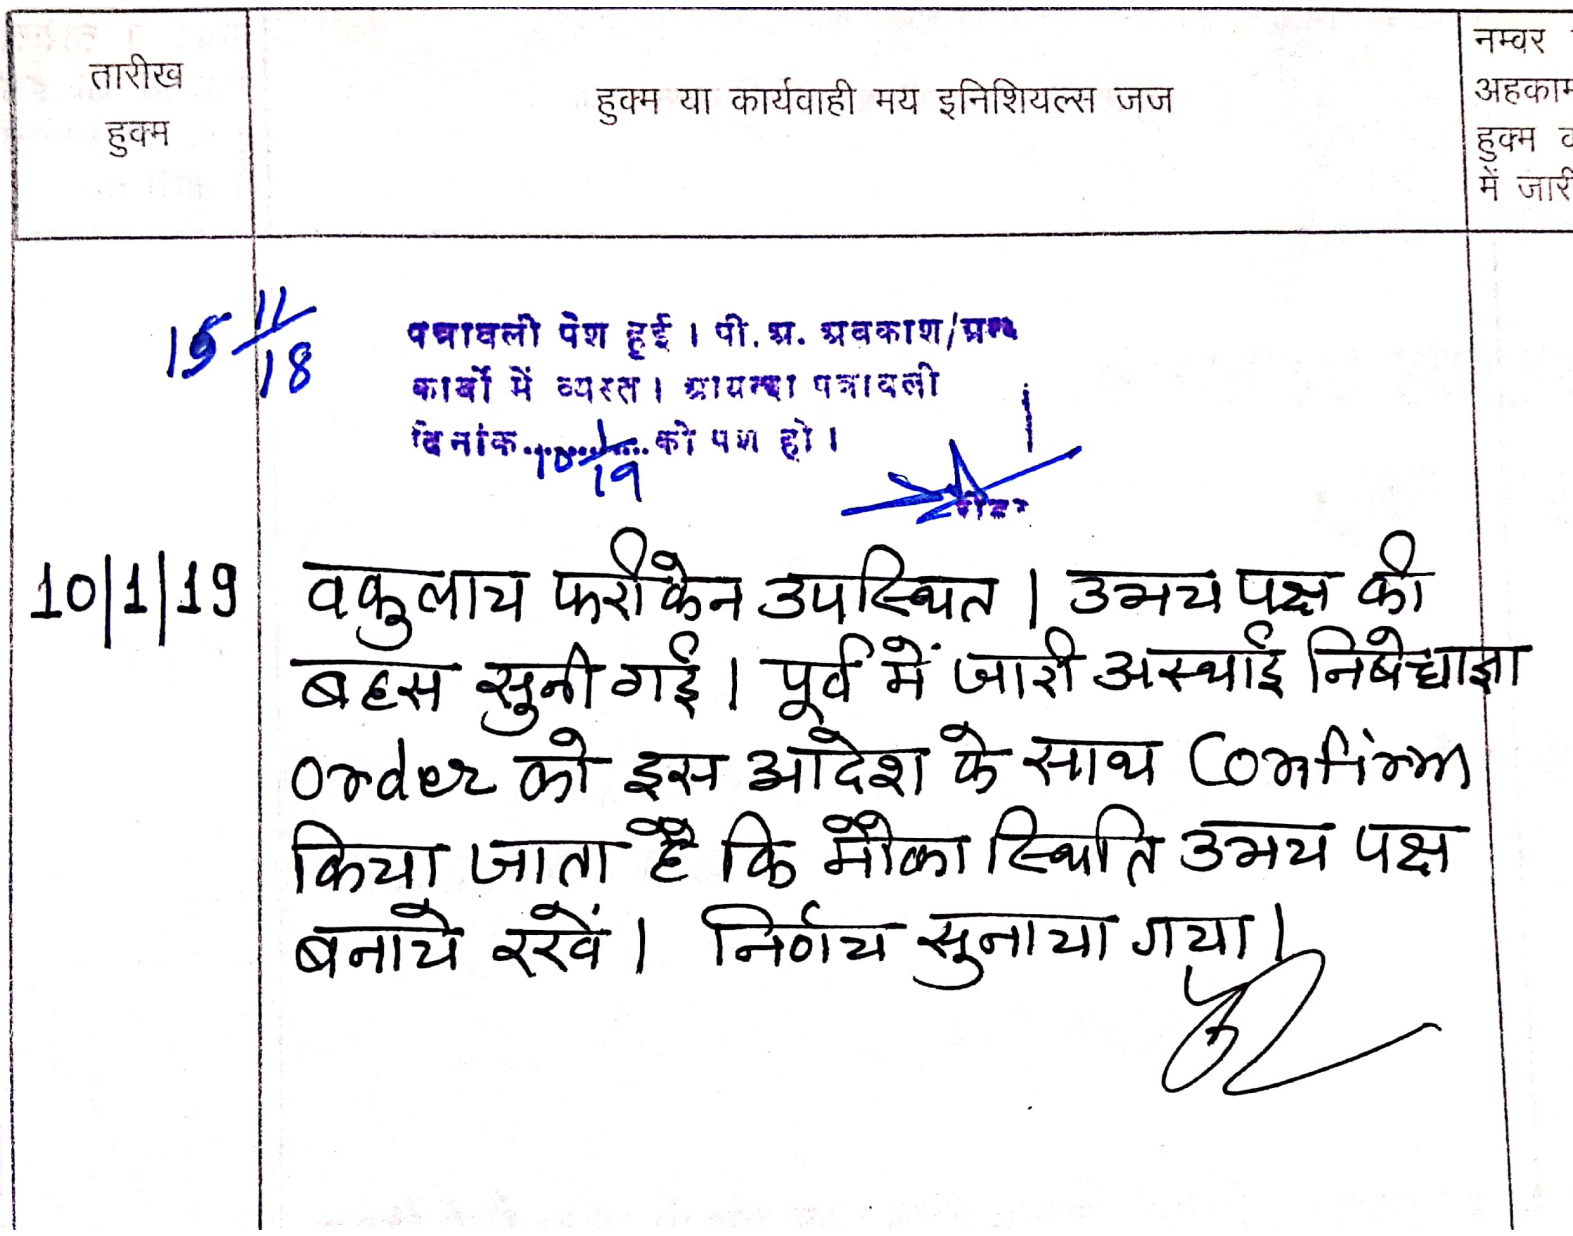 तारीख
हुक्म
हुक्म या कार्यवाही मय इनिशियल्स जज
नम्वर
अहकाम
हुक्म
में जारी
15 11/18
पत्रावली पेश हुई । पी. अ. अवकाश/अन्य
कार्यो में व्यस्त । आयन्दा पत्रावली
दिनांक.......... को पेश हो ।
10 1/19
रीडर
10/1/19
वकुलाय फरीकेन उपस्थित । उभय पक्ष की
बहस सुनी गई । पूर्व में जारी अस्थाई निषेधाज्ञा
order को इस आदेश के साथ Confirm
किया जाता है कि मौका स्थिति उभय पक्ष
बनाये रखें । निर्णय सुनाया गया ।